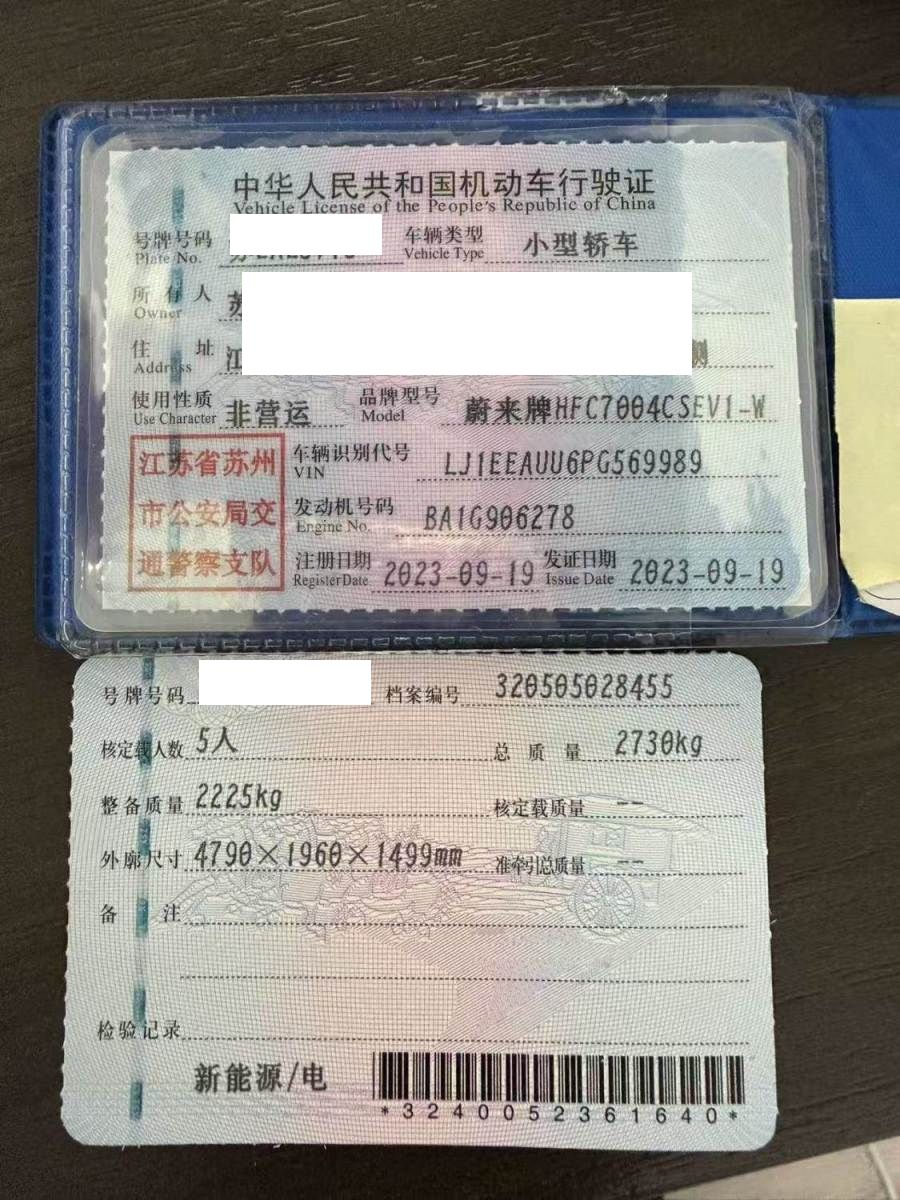 中华人民共和国机动车行驶证
Vehicle License of the People's Republic of China
号牌号码 车辆类型 小型轿车
Plate No. Vehicle Type
所有人 苏
Owner
住址 江
Address
使用性质 非营运 品牌型号 蔚来牌HFC7004CSEV1-W
Use Character Model
江苏省苏州
市公安局交
通警察支队
车辆识别代号 LJ1EEAUU6PG569989
VIN
发动机号码 BA1G906278
Engine No.
注册日期 2023-09-19 发证日期 2023-09-19
Register Date Issue Date
号牌号码 档案编号 320505028455
核定载人数 5人 总质量 2730kg
整备质量 2225kg 核定载质量 --
外廓尺寸 4790×1960×1499mm 准牵引总质量 --
备注
检验记录
新能源/电
*3240052361640*